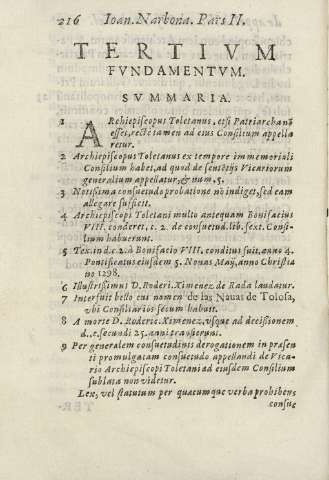 216 Ioan. Narbona. Pars II.
TERTIVM
FVNDAMENTVM.
SVMMARIA.
1 ARchiepiscopus Toletanus, etsi Patriarcha nō
esset, rectè tamen ad eius Consilium appella
retur.
2 Archiepiscopus Toletanus ex tempore immemoriali
Consilium habet, ad quod de sentētijs Vicariorum
generalium appellatur, & num. 5.
3 Notissima consuetudo probatione nō indiget, sed eam
allegare sufficit.
4 Archiepiscopi Toletani multo antequam Bonifacius
VIII. conderet, c. 2. de consuetud. lib. sext. Consi-
lium habuerant.
5 Tex. in d. c. 2. à Bonifacio VIII. conditus fuit, anno 4.
Pontificatus eiusdem 5. Nonas Maij, anno Christia
no 1298.
6 Illustrissimus D. Roderi. Ximenez. de Rada laudatur.
7 Interfuit bello cui nomen de las Nauas de Tolosa,
vbi Consiliarios secum habuit.
8 A morte D. Roderic. Ximenez, vsque ad decisionem
d. c. secundi 25. anni transierunt.
9 Per generalem consuetudinis derogationem in præsen
ti promulgatam consuetudo appellandi de Vica-
rio Archiepiscopi Toletani ad eiusdem Consilium
sublata non videtur.
Lex, vel statutum per quæcumque verba prohibens
consue